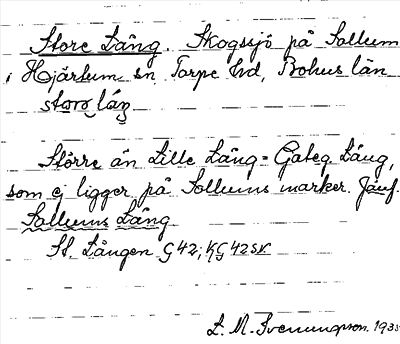 Store Lång. Skogssjö på Sollum
i Hjärtum sn Torpe hd, Bohus län
storə láŋ
Större än Lille Lång = Gateq. Lång,
som ej ligger på Sollums marker. Jämf.
Sollums Lång
St. Lången G 42; KG 42 SV
L. M. Svenungsson. 193